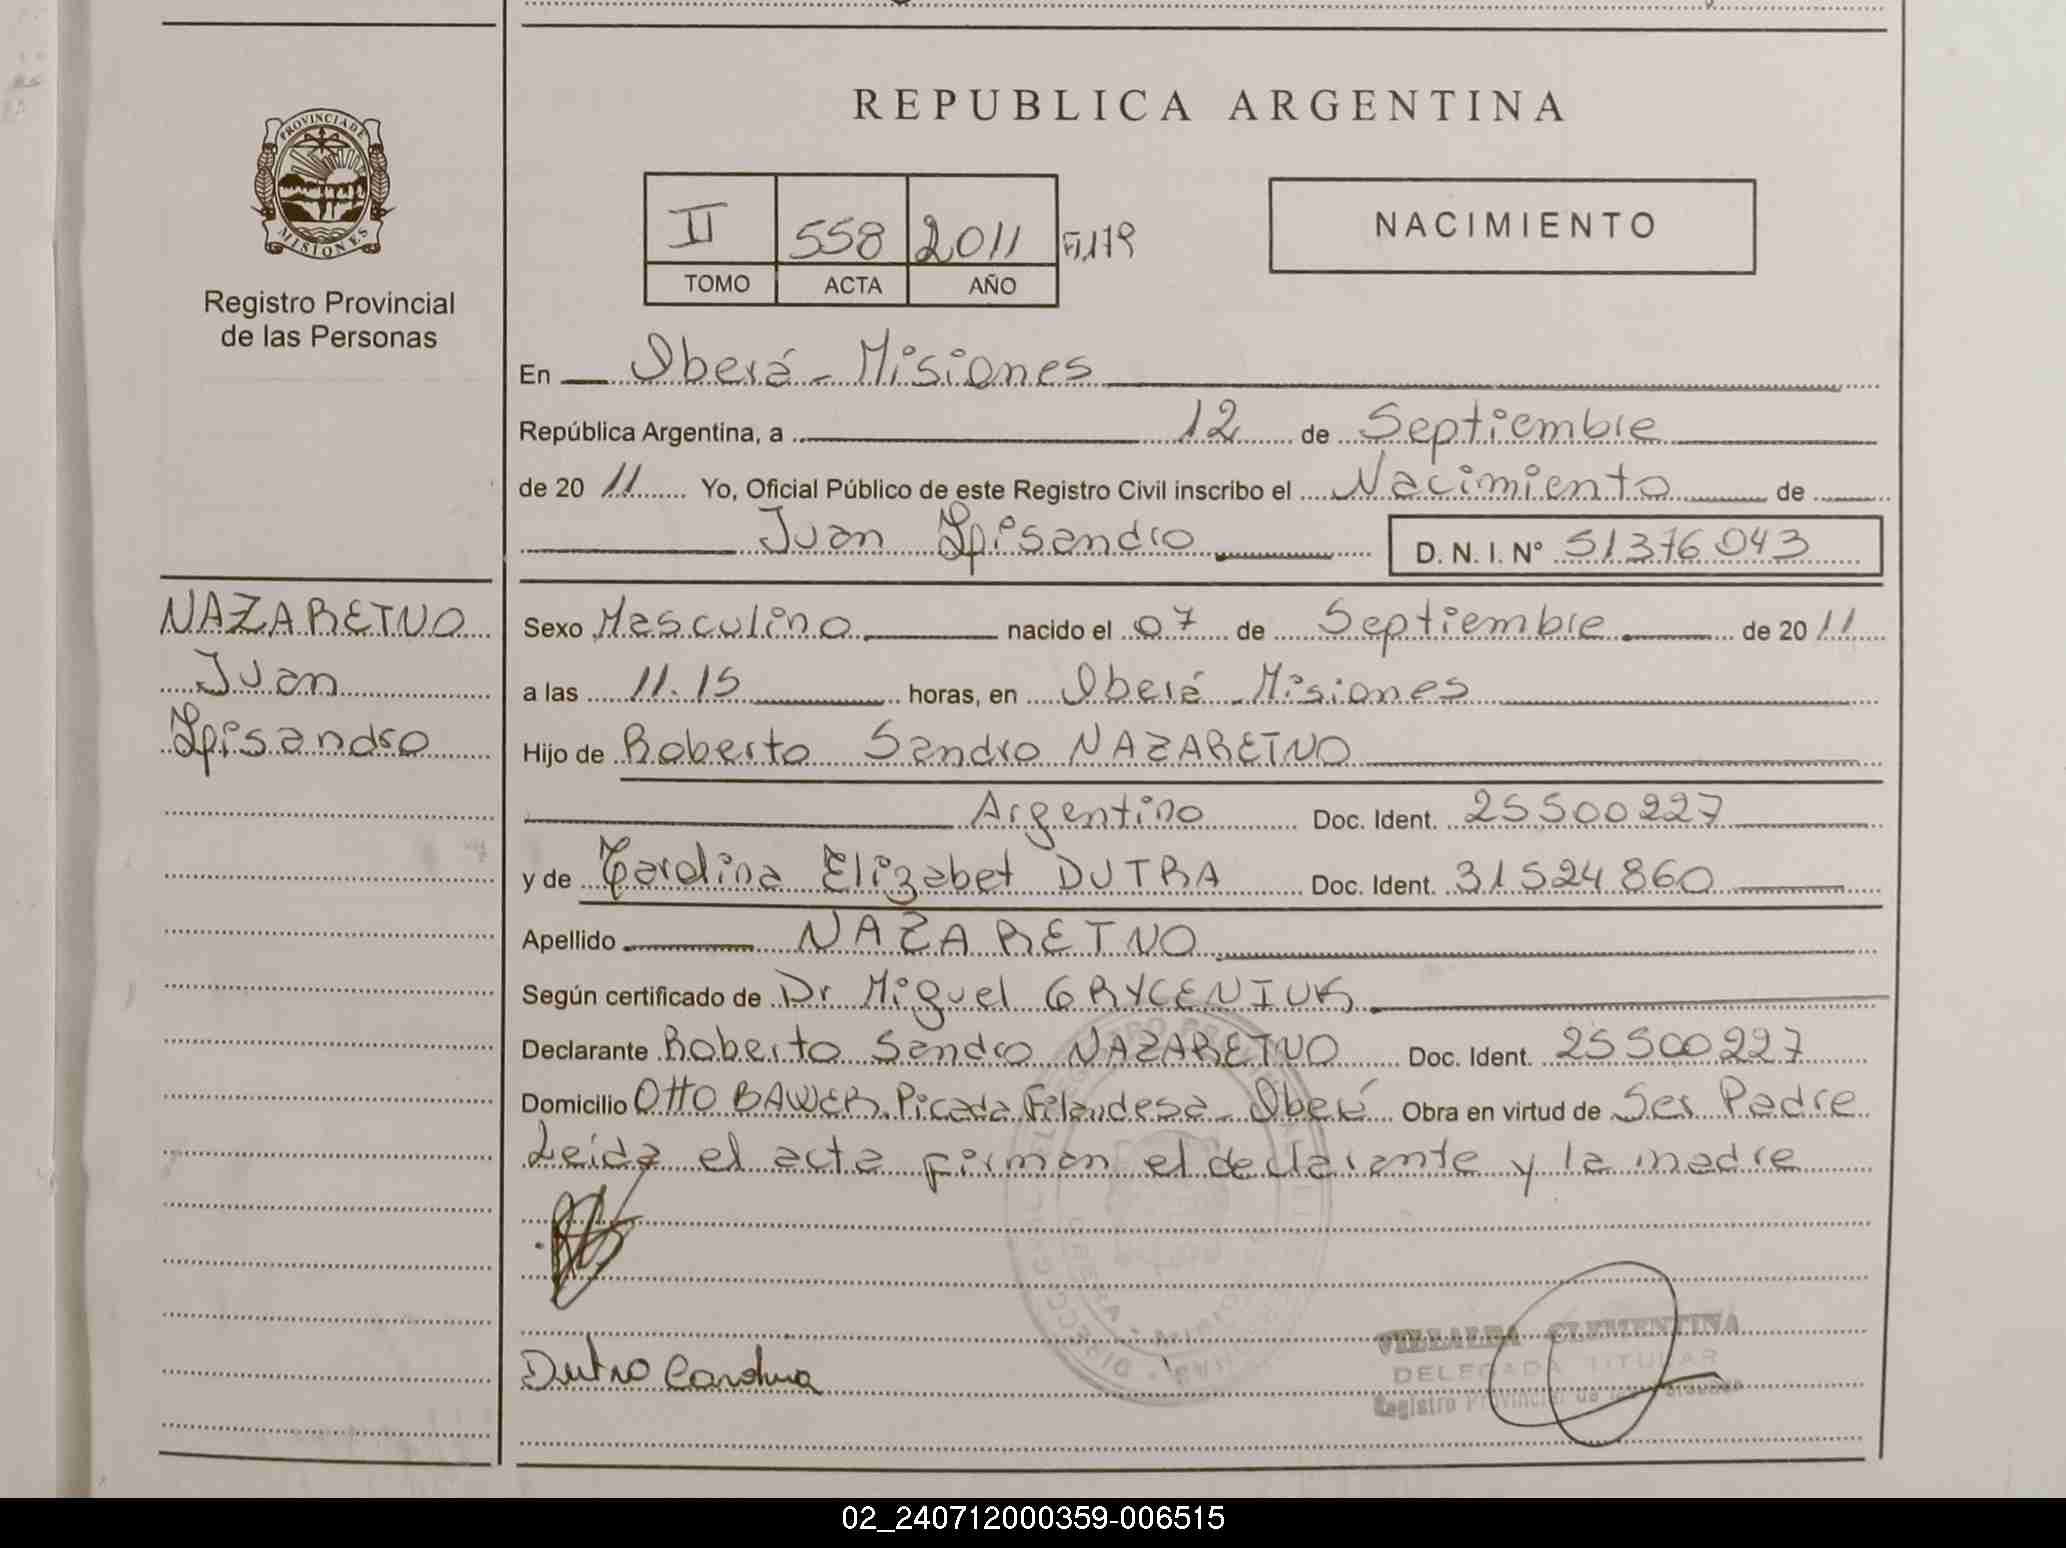 PROVINCIA DE
MISIONES
Registro Provincial
de las Personas
REPUBLICA ARGENTINA
II 558 2011 F179
TOMO ACTA AÑO
NACIMIENTO
En Oberá - Misiones
República Argentina, a 12 de Septiembre
de 20 11 Yo, Oficial Público de este Registro Civil inscribo el Nacimiento de
Juan Lpisandro D. N. I. N° 51376043
NAZARETNO
Juan
Lpisandro
Sexo Masculino nacido el 07 de Septiembre de 20 11
a las 11.15 horas, en Oberá - Misiones
Hijo de Roberto Sandro NAZARETNO
Argentino Doc. Ident. 25500227
y de Carolina Elizabet DUTRA Doc. Ident. 31524860
Apellido NAZARETNO
Según certificado de Dr Miguel GRYCENIUK
Declarante Roberto Sandro NAZARETNO Doc. Ident. 25500227
Domicilio Otto BAWER. Picada Filandesa - Oberá Obra en virtud de Ser Padre
Leída el acta firman el declarante y la madre
Dutra Carolina
VILLALBA CLEMENTINA
DELEGADA TITULAR
Registro Provincial de las Personas
02_240712000359-006515